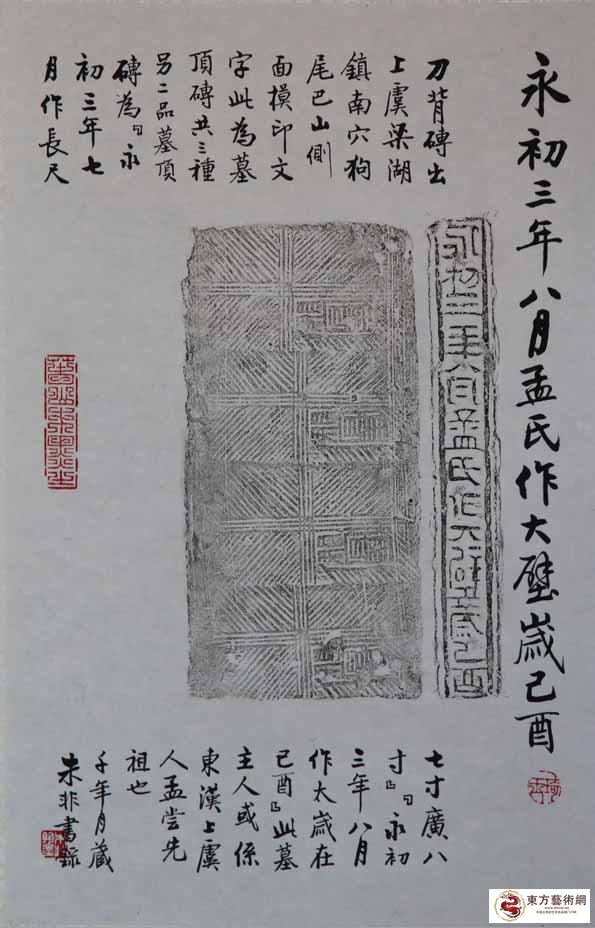 永初三年八月孟氏作大壁歲己酉
刀背磚出
上虞梁湖
鎮南穴狗
尾巴山側
面模印文
字此為墓
頂磚共三種
另二品墓頂
磚為『永
初三年七
月作長尺
永初三年八月孟氏作大壁歲己酉
七寸廣八
寸』『永初
三年八月
作太歲在
己酉』此墓
主人或係
東漢上虞
人孟嘗先
祖也
千年月藏
未非書錄
東方藝術網